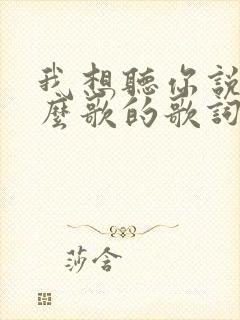 我想聽你說
麼歌的歌詞
莎含